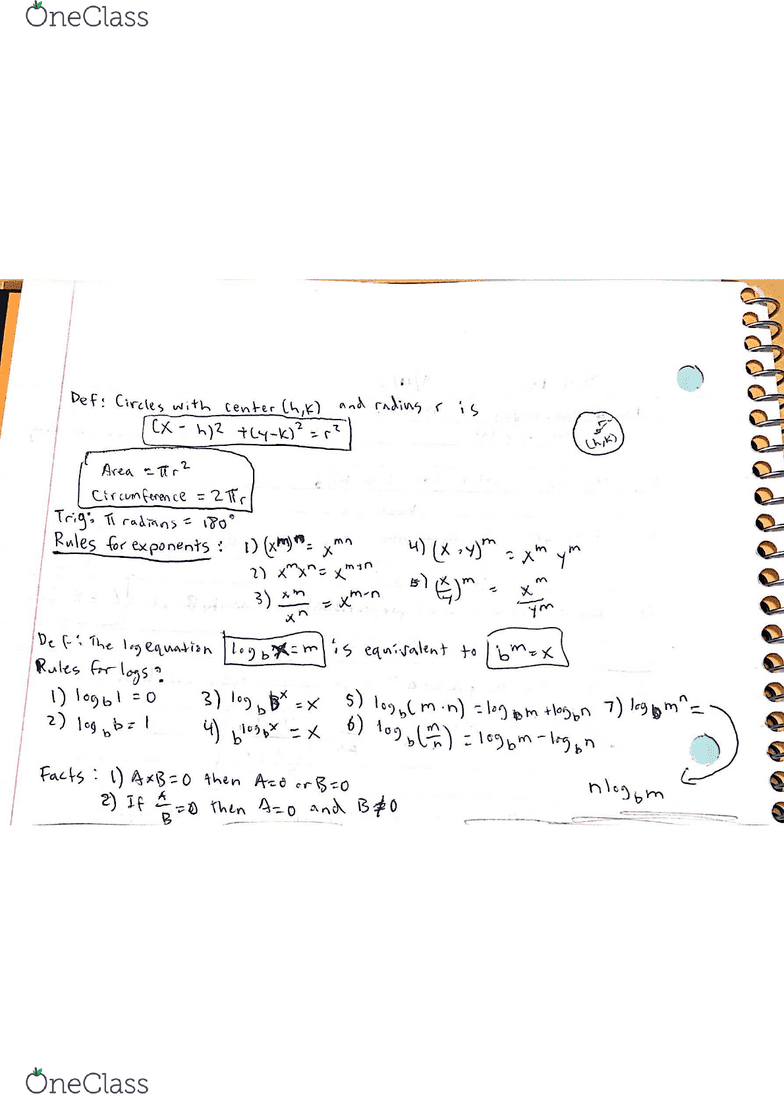 OneClass
Def: Circles with center (h,k) and radius r is
(x - h)2 +(y-k)² = r²
(h,k)
Area = πr²
Circumference = 2πr
Trig: π radians = 180°
Rules for exponents: 1) (x^m)^n = x^mn 4) (x·y)^m = x^m y^m
2) x^m x^n = x^m+n 5) (x/y)^m = x^m/y^m
3) x^m/x^n = x^m-n
Def: The log equation log_b x = m is equivalent to b^m = x
Rules for logs:
1) log_b 1 = 0 3) log_b b^x = x 5) log_b(m·n) = log_b m + log_b n 7) log_b m^n =
2) log_b b = 1 4) b^log_b x = x 6) log_b(m/n) = log_b m - log_b n
n log_b m
Facts: 1) A×B=0 then A=0 or B=0
2) If A/B = 0 then A=0 and B≠0
OneClass